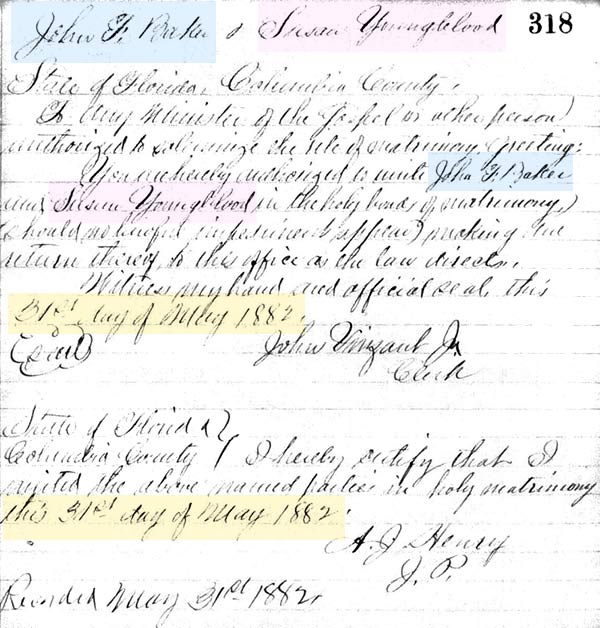 John F. Baker & Susan Youngblood 318
State of Florida, Columbia County.
To Any Minister of the Gospel or other person
authorized to solemnize the rite of matrimony Greeting:
You are hereby authorized to unite John F. Baker
and Susan Youngblood in the holy bonds of matrimony,
(should no lawful impediment appear) making due
return thereof to this office as the law directs.
Witness my hand and official seal, this
31st day of May 1882.
(seal) John Vinzant Jr
Clerk
State of Florida
Columbia County I hereby certify that I
united the above named parties in holy matrimony
this 31st day of May 1882.
A. J. Henry
J. P.
Recorded May 31st 1882.